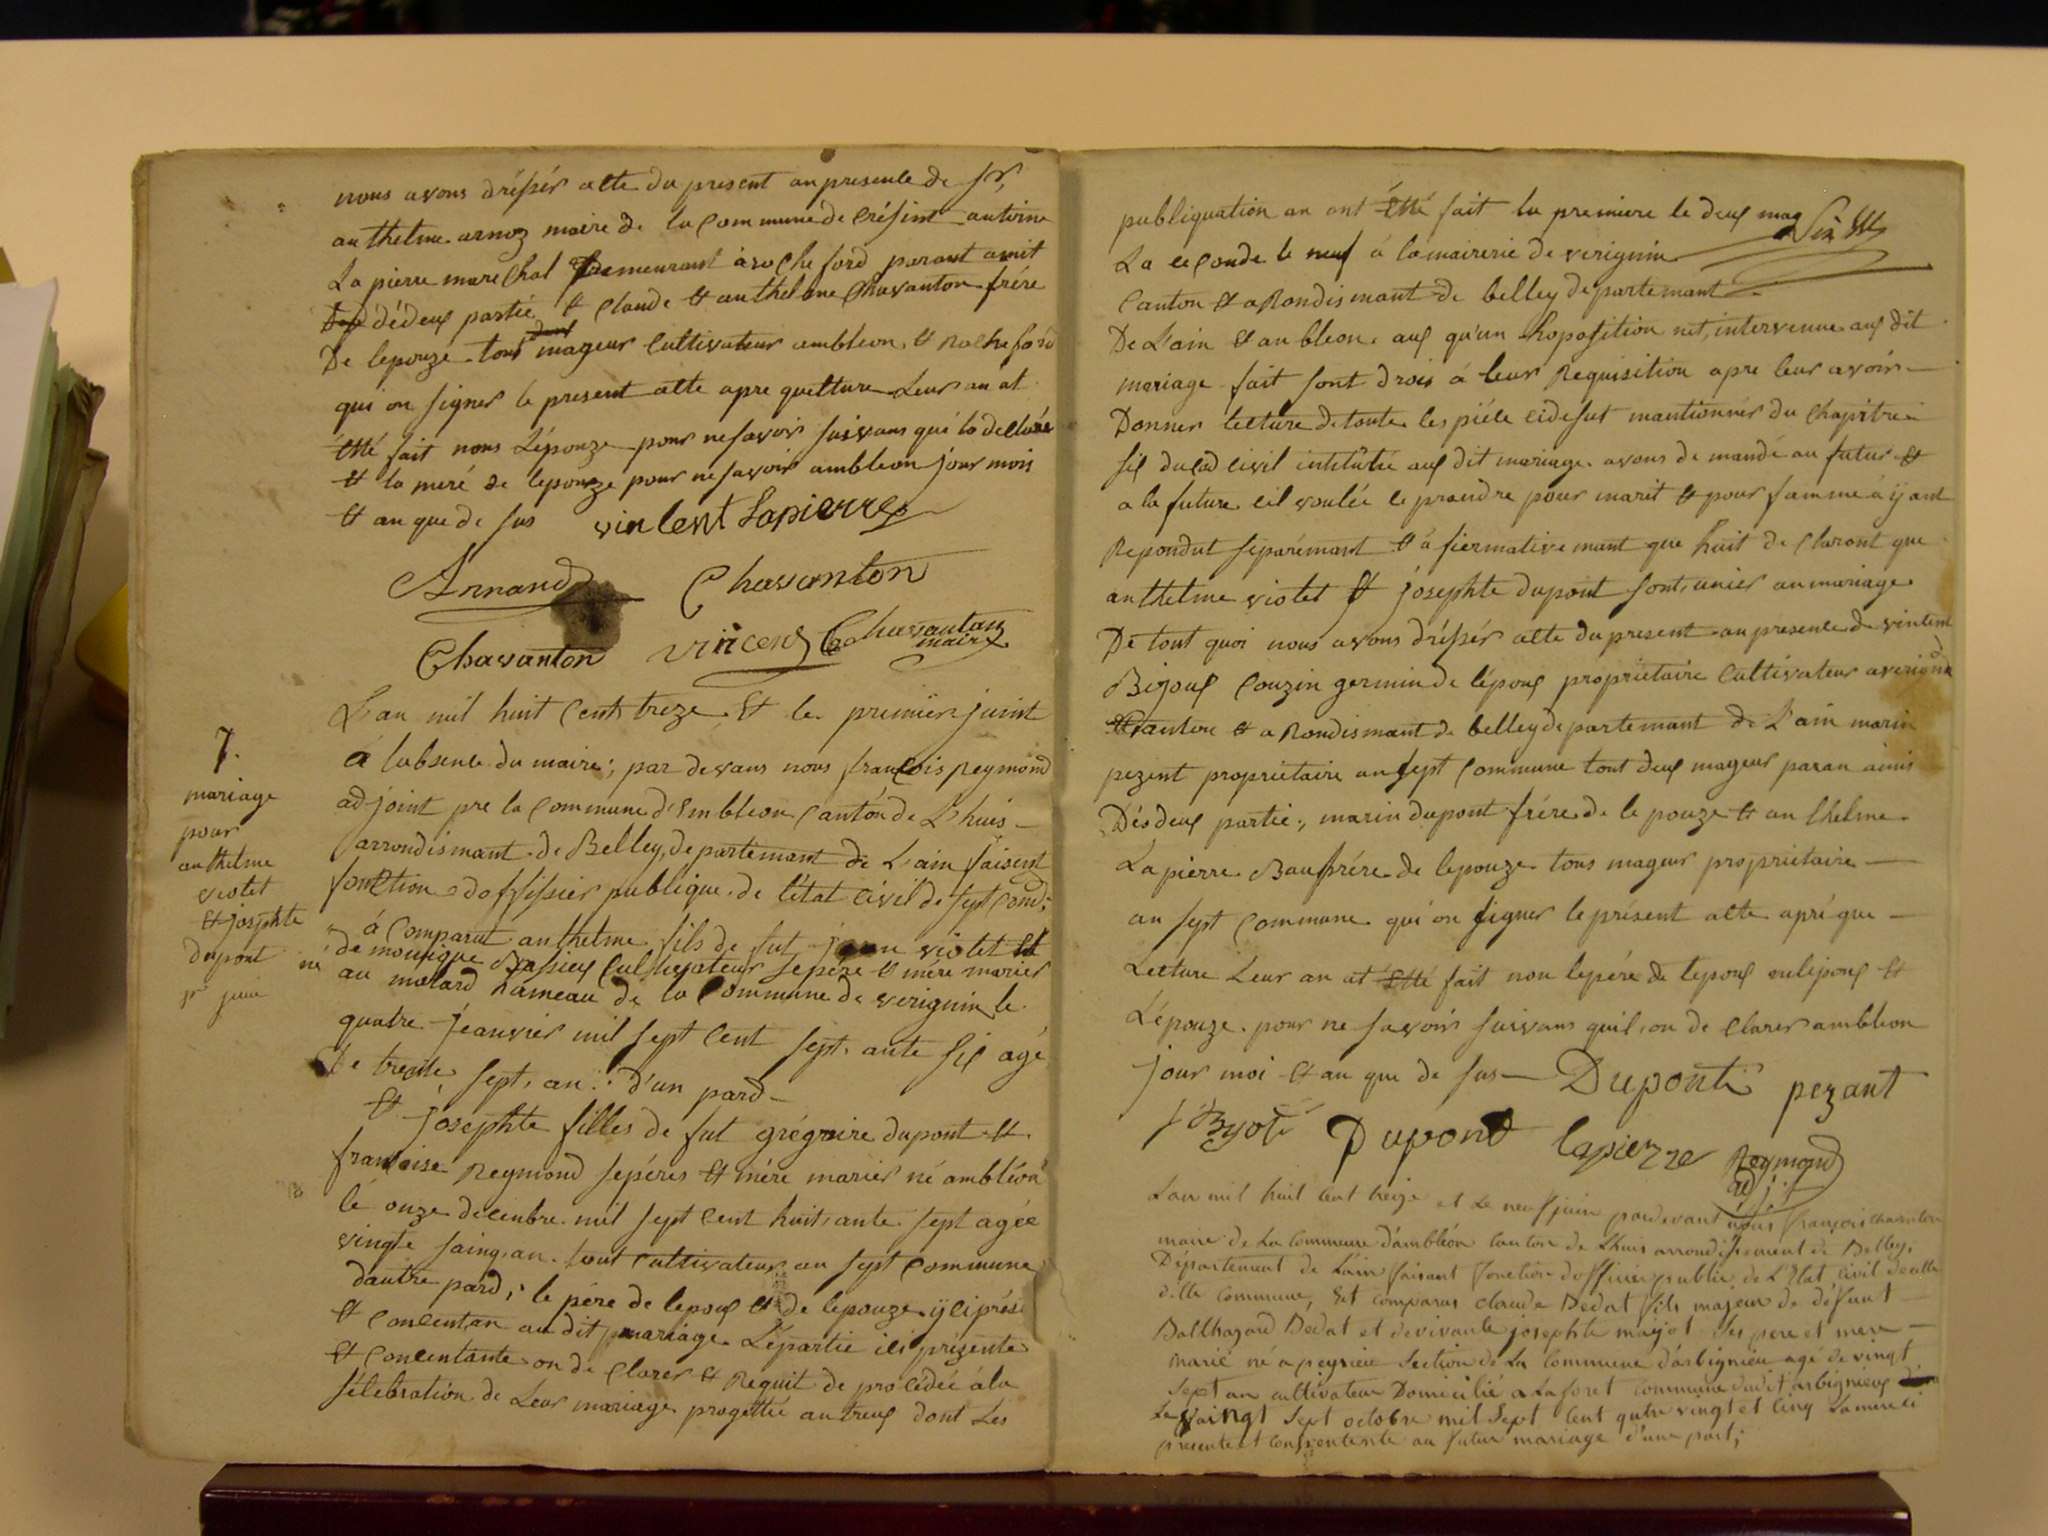 nous avons dréssér atte du present an presente de sr,
anthelme arnoz maire de la Commune de Crésint antoine
La pierre mareChal demeurant à rocheford parant amit
dédeux partié, et Claude et anthelme Chavanton frére
De lepouze tous mageur Cultivateur ambleon, et Rocheford
qui on signer le present atte apre quelture Leur an at
étté fait nons L'épouze pour nesavoir suivans qué la decloré
et la meré de lepouze pour nesavoir ambleon jour mois
et an que de sus vinlent Lapierre
Arnand Chavanton
Chavanton vincend Chavanton
maire
7.
mariage
pour
anthelme
violet
et josephte
dupont
1er juin
L'an mil huit Cent treze et le premiér juint
à labsence du maire; par devans nous francois Reymond
adjoint pre la Commune d'embleon Canton de L'huis
arrondismant de Belley, departemant de L'ain faisent
fonction dofissier publique de l'état Civil de sept Comd:
à Comparut anthelme fils de fut jean violet et
de monique Cultivateur sepére et mere marier
né au molard hameau de la Commune de verignin le
quatre jeanvier mil sept Cent sept, ante six agé
de trente, sept, an: d'un pard
et josephte filles de fut grégoire dupont et
francoise Reymond sepéres et mére mariér né ambléon
lé onze decembre mil sept Cent huit, ante sept agée
vingte saing, an tout Cultivateur au sept Commune
dautre pard; le pére de lepoux et de lepouze yciprése
et Concentan au dit mariage L'épartie ici prezente
et Concentante on de Clarer et Requit de procédée à la
sélebration de Leur mariage progettée antreux dont Les
publiquation an ont étté fait la premiere le deux mag
La ceConde le neuf à la mairerie de verignin
Canton et aRondismant de belley departemant
De L'ain et ambleon aux qu'un hoposition nét, intervenue aux dit
mariage fait sont drois à leur Requisition apre leur avoir
Donner lecture de toute les piéce cidesut mantionnér du Chapitre
six du Cod civil intitutré aux dit mariage avons de mandé au futur et
a la future cil voulée ce prendre pour marit et pour famme à yant
Repondut séparémant et afiermativemant que huit de Claront que
anthelme violet et josephte dupont sont, unier an mariage
De tout quoi nous avons dréssér atte du present an presente de vintent
Bijoux Couzin germin de lépoux propriétaire Cultivateur a verignin
Canton et aRondismant de belley departemant de L'ain marin
pezent propriétaire an sept Commune tout deux mageur paran amis
Désdeux partie, marin dupont frére de le pouze et an thelme
Lapierre Baufrére de lepouze tous mageur propriétaire
an sept Commune qui on signer le présent atte apré que
Lecture Leur an at étté fait non lepére de lepoux enlipoux et
L'épouze pour ne savoir suivans quil, on de Clarer ambleon
jour moi et an que de sus Duponti pezant
Dupond lapierre Reymond
adj.
L'an mil huit cent treize et Le neuf juin pardevant nous françois chavanton
maire de La Commune d'ambléon canton de Lhuis arrondissement de Belley,
Département de Lain faisant fonction dofficier public de L'Etat civil de cette
ditte Commune, Est comparus claude Dedat fils majeur de défunt
Balthazard Dedat et de vivante josephte mayot ses pere et mere
marié né a peyzieu Section de La Commune d'arbignieu agé de vingt
Sept an cultivateur Domicilié a La foret commune dudit arbignieux
Le vaingt Sept octobre mil Sept Cent qutre vingt et Cinq La mere ci
presente et Consentente au futur mariage d'une part;